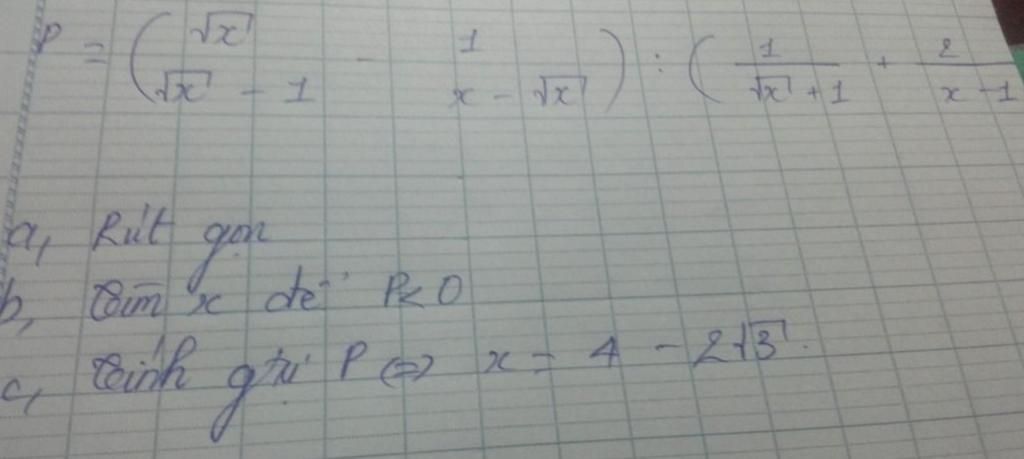 P = (√x / √x - 1 - 1 / x - √x) : (1 / √x + 1 + 2 / x - 1
a, Rút gọn
b, Tìm x để P < 0
c, Tính gtrị P <=> x = 4 - 2√3.